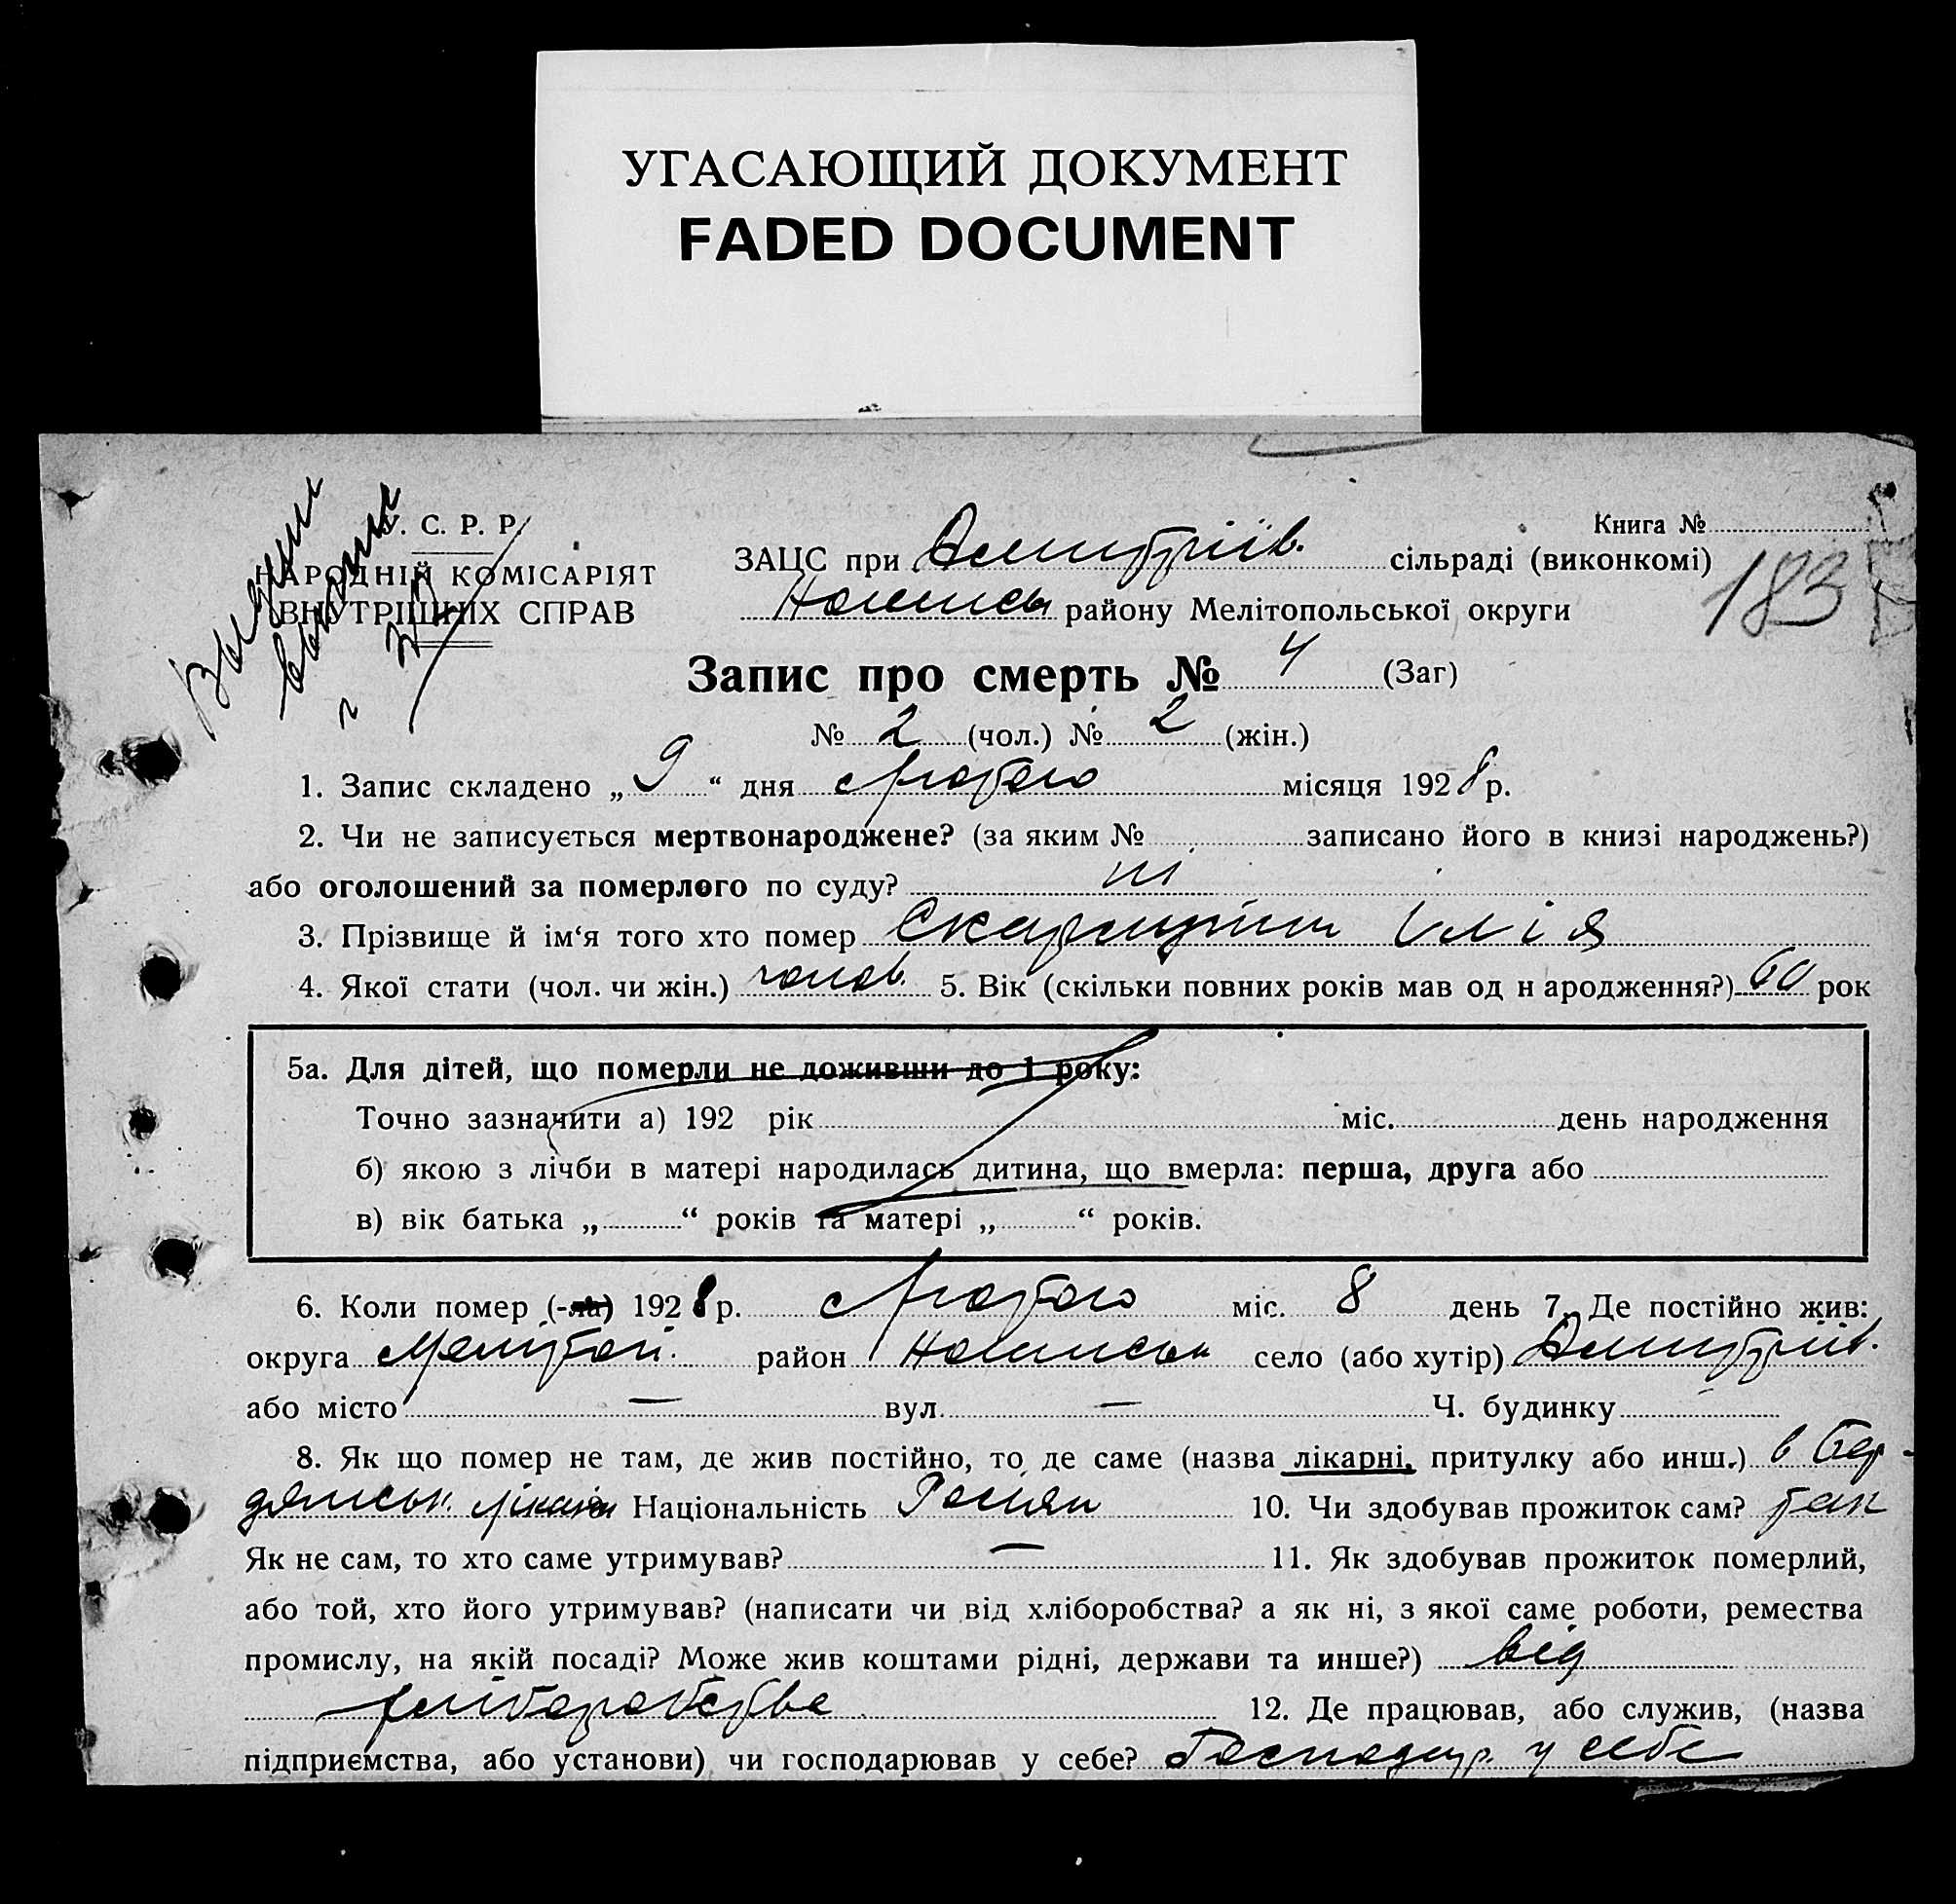 УГАСАЮЩИЙ ДОКУМЕНТ
FADED DOCUMENT
У. С. Р. Р.
НАРОДНІЙ КОМІСАРІЯТ
ВНУТРІШНІХ СПРАВ
Книга №
ЗАЦС при Дмитріїв. сільраді (виконкомі)
183
району Мелітопольської округи
Запис про смерть № 4 (Заг)
№ 2 (чол.) № 2 (жін.)
1. Запис складено „ 9 “ дня Лютого місяця 1928 р.
2. Чи не записується мертвонароджене? (за яким № записано його в книзі народжень?)
або оголошений за померлого по суду? ні
3. Прізвище й ім‘я того хто помер Ілія
4. Якої стати (чол. чи жін.) чолов. 5. Вік (скільки повних років мав од н ародження?) 60 рок
5а. Для дітей, що померли не доживши до 1 року:
Точно зазначити а) 192 рік міс. день народження
б) якою з лічби в матері народилась дитина, що вмерла: перша, друга або
в) вік батька „ “ років та матері „ “ років.
6. Коли помер (-ла) 1928 р. Лютого міс. 8 день 7. Де постійно жив:
округа Мелітоп. район село (або хутір) Дмитріїв.
або місто — вул. — Ч. будинку
8. Як що помер не там, де жив постійно, то де саме (назва лікарні, притулку або инш.) в Бер-
дянськ. лікарні Національність Росіян 10. Чи здобував прожиток сам? так
Як не сам, то хто саме утримував? — 11. Як здобував прожиток померлий,
або той, хто його утримував? (написати чи від хліборобства? а як ні, з якої саме роботи, ремества
промислу, на якій посаді? Може жив коштами рідні, держави та инше?) від
хліборобства 12. Де працював, або служив, (назва
підприємства, або установи) чи господарював у себе? Господар. у себе